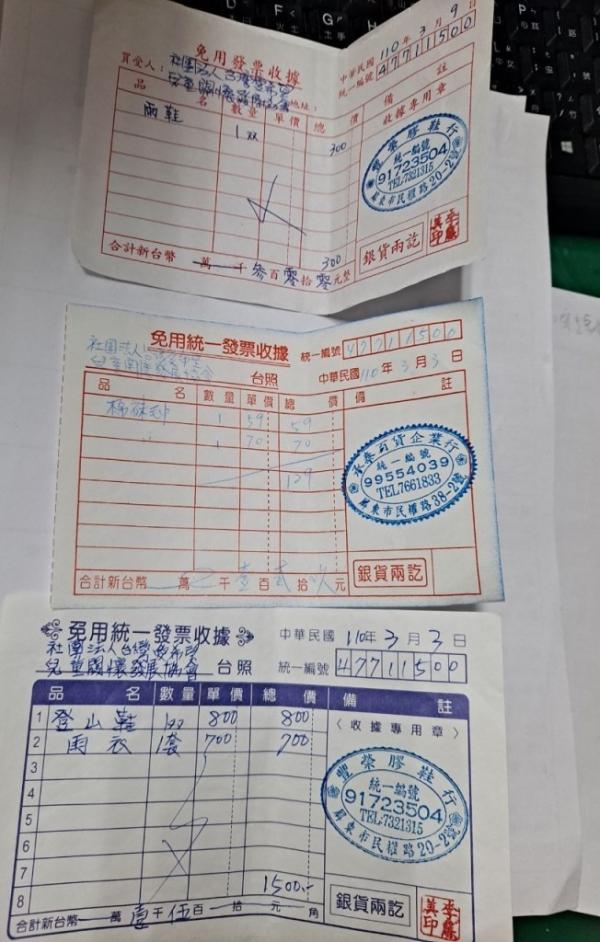 免用發票收據
中華民國 110 年 3 月 9 日
統一編號 47711500
買受人：社團法人台灣
兒童關懷發展協會 地址：
品 名 數量 單價 總 價 備 註
收據專用章
雨鞋 1双 300
豐榮膠鞋行
統一編號
91723504
TEL:7321315
屏東市民權路20-2號
300
銀貨兩訖
合計新台幣 萬 千 參 百 零 拾 零 元整
免用統一發票收據
統一編號 47711500
社團法人
兒童關懷發展協會
台照
中華民國 110 年 3 月 3 日
品 名 數量 單價 總 價 備 註
棉 1 59 59
1 70 70
129
永泰百貨企業行
統一編號
99554039
TEL7661833
屏東市民權路38-2號
銀貨兩訖
合計新台幣 萬 千 壹 百 貳 拾 元
免用統一發票收據
中華民國 110年 3 月 3 日
社團法人台灣
兒童關懷發展協會 台照
統一編號 47711500
品 名 數量 單價 總 價 備 註
〈收據專用章〉
1 登山鞋 1双 800 800
2 雨衣 1套 700 700
3
4
5
6
7
8
1500.-
豐榮膠鞋行
統一編號
91723504
TEL:7321315
屏東市民權路20-2號
銀貨兩訖
合計新台幣 萬 壹 千 伍 百 拾 元 角